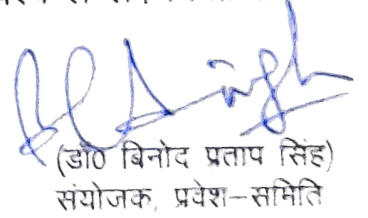 (डॉ0 बिनोद प्रताप सिंह)
संयोजक, प्रवेश–समिति